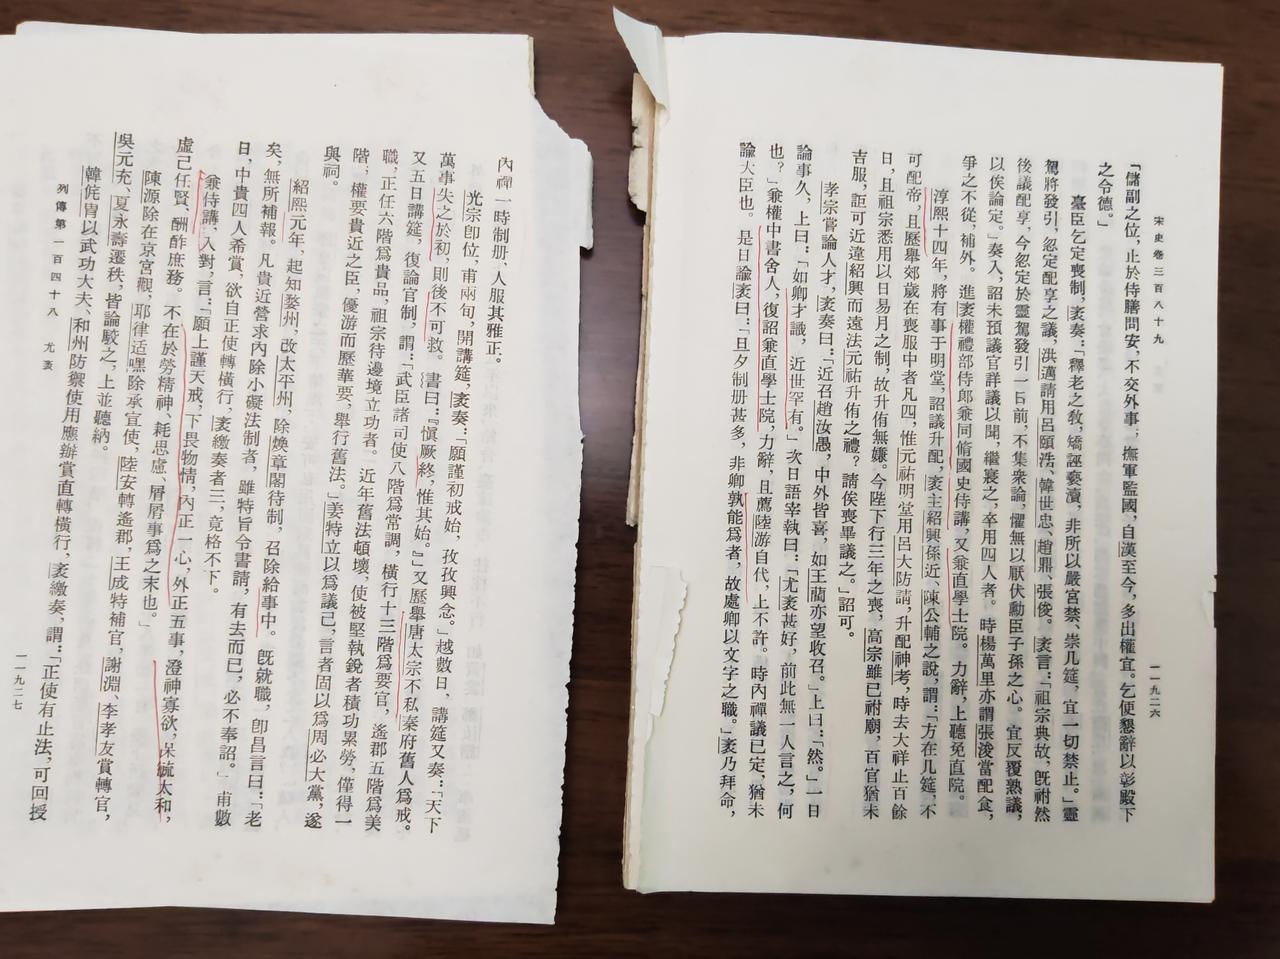 宋史卷三百八十九
一一九二六
「儲副之位,止於侍膳問安,不交外事;撫軍監國,自漢至今,多出權宜。乞便懇辭以彰殿下
之令德。」
臺臣乞定喪制,袤奏:「釋老之教,矯誣褻瀆,非所以嚴宮禁、崇几筵,宜一切禁止。」靈
駕將發引,忽定配享之議,洪邁請用呂頤浩、韓世忠、趙鼎、張俊。袤言:「祖宗典故,旣祔然
後議配享,今忽定於靈駕發引一日前,不集衆論,懼無以厭伏勳臣子孫之心。宜反覆熟議,
以俟論定。」奏入,詔未預議官詳議以聞,繼寢之,卒用四人者。時楊萬里亦謂張浚當配食,
爭之不從,補外。進袤權禮部侍郎兼同修國史侍講,又兼直學士院。力辭,上聽免直院。
淳熙十四年,將有事于明堂,詔議升配,袤主紹興孫近、陳公輔之說,謂:「方在几筵,不
可配帝,且歷舉郊歲在喪服中者凡四,惟元祐明堂用呂大防請,升配神考,時去大祥止百餘
日,且祖宗悉用以日易月之制,故升侑無嫌。今陛下行三年之喪,高宗雖已祔廟,百官猶未
吉服,詎可近違紹興而遠法元祐升侑之禮?請俟喪畢議之。」詔可。
孝宗嘗論人才,袤奏曰:「近召趙汝愚,中外皆喜,如王藺亦望收召。」上曰:「然。」一日
論事久,上曰:「如卿才識,近世罕有。」次日語宰執曰:「尤袤甚好,前此無一人言之,何
也?」兼權中書舍人,復詔兼直學士院,力辭,且薦陸游自代,上不許。時內禪議已定,猶未
諭大臣也。是日諭袤曰:「旦夕制册甚多,非卿孰能爲者,故處卿以文字之職。」袤乃拜命,
內禪一時制册,人服其雅正。
光宗卽位,甫兩旬,開講筵,袤奏:「願謹初戒始,孜孜興念。」越數日,講筵又奏:「天下
萬事失之於初,則後不可救。書曰:『愼厥終,惟其始。』」又歷舉唐太宗不私秦府舊人爲戒。
又五日講筵,復論官制,謂:「武臣諸司使八階爲常調,橫行十三階爲要官,遙郡五階爲美
職,正任六階爲貴品,祖宗待邊境立功者。近年舊法頓壞,使被堅執銳者積功累勞,僅得一
階;權要貴近之臣,優游而歷華要,舉行舊法。」姜特立以爲議己,言者固以爲周必大黨,遂
與祠。
紹熙元年,起知婺州,改太平州,除煥章閣待制,召除給事中。旣就職,卽昌言曰:「老
矣,無所補報。凡貴近營求內除小礙法制者,雖特旨令書請,有去而已,必不奉詔。」甫數
日,中貴四人希賞,欲自正使轉橫行,袤繳奏者三,竟格不下。
兼侍講,入對,言:「願上謹天戒,下畏物情,內正一心,外正五事,澄神寡欲,保毓太和,
虛己任賢,酬酢庶務。不在於勞精神、耗思慮、屑屑事爲之末也。」
陳源除在京宮觀,耶律适嘿除承宣使,陸安轉遙郡,王成特補官,謝淵、李孝友賞轉官,
吳元充、夏永壽遷秩,皆論駁之,上並聽納。
韓侂胄以武功大夫、和州防禦使用應辦賞直轉橫行,袤繳奏,謂:「正使有止法,可回授
列傳第一百四十八 尤袤
一一九二七